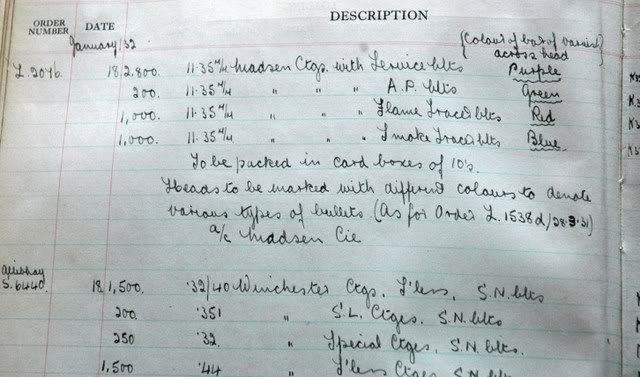 ORDER NUMBER DATE DESCRIPTION
January '32 {Colour of bar of varnish across head
L.2076. 18. 2.800. 11.35 m/m Madsen Ctgs. with Service blts Purple
200. 11.35 m/m " " " A.P. blts Green
1,000. 11.35 m/m " " " Flame Tracer blts Red
1,000. 11.35 m/m " " " Smoke Tracer blts Blue
To be packed in card boxes of 10's.
Heads to be marked with different colours to denote
various types of bullets (As for Order L.1538d/28.3.31)
a/c Madsen Cie
S.6440. 18. 1,500. '32/40 Winchester Ctgs. S'less, S.N. blts
200. '351 " S.L. Ctges. S.N. blts
250 '32 " Special Ctges, S.N. blts.
1,500 '44 " S'less Ctges S.N. blts